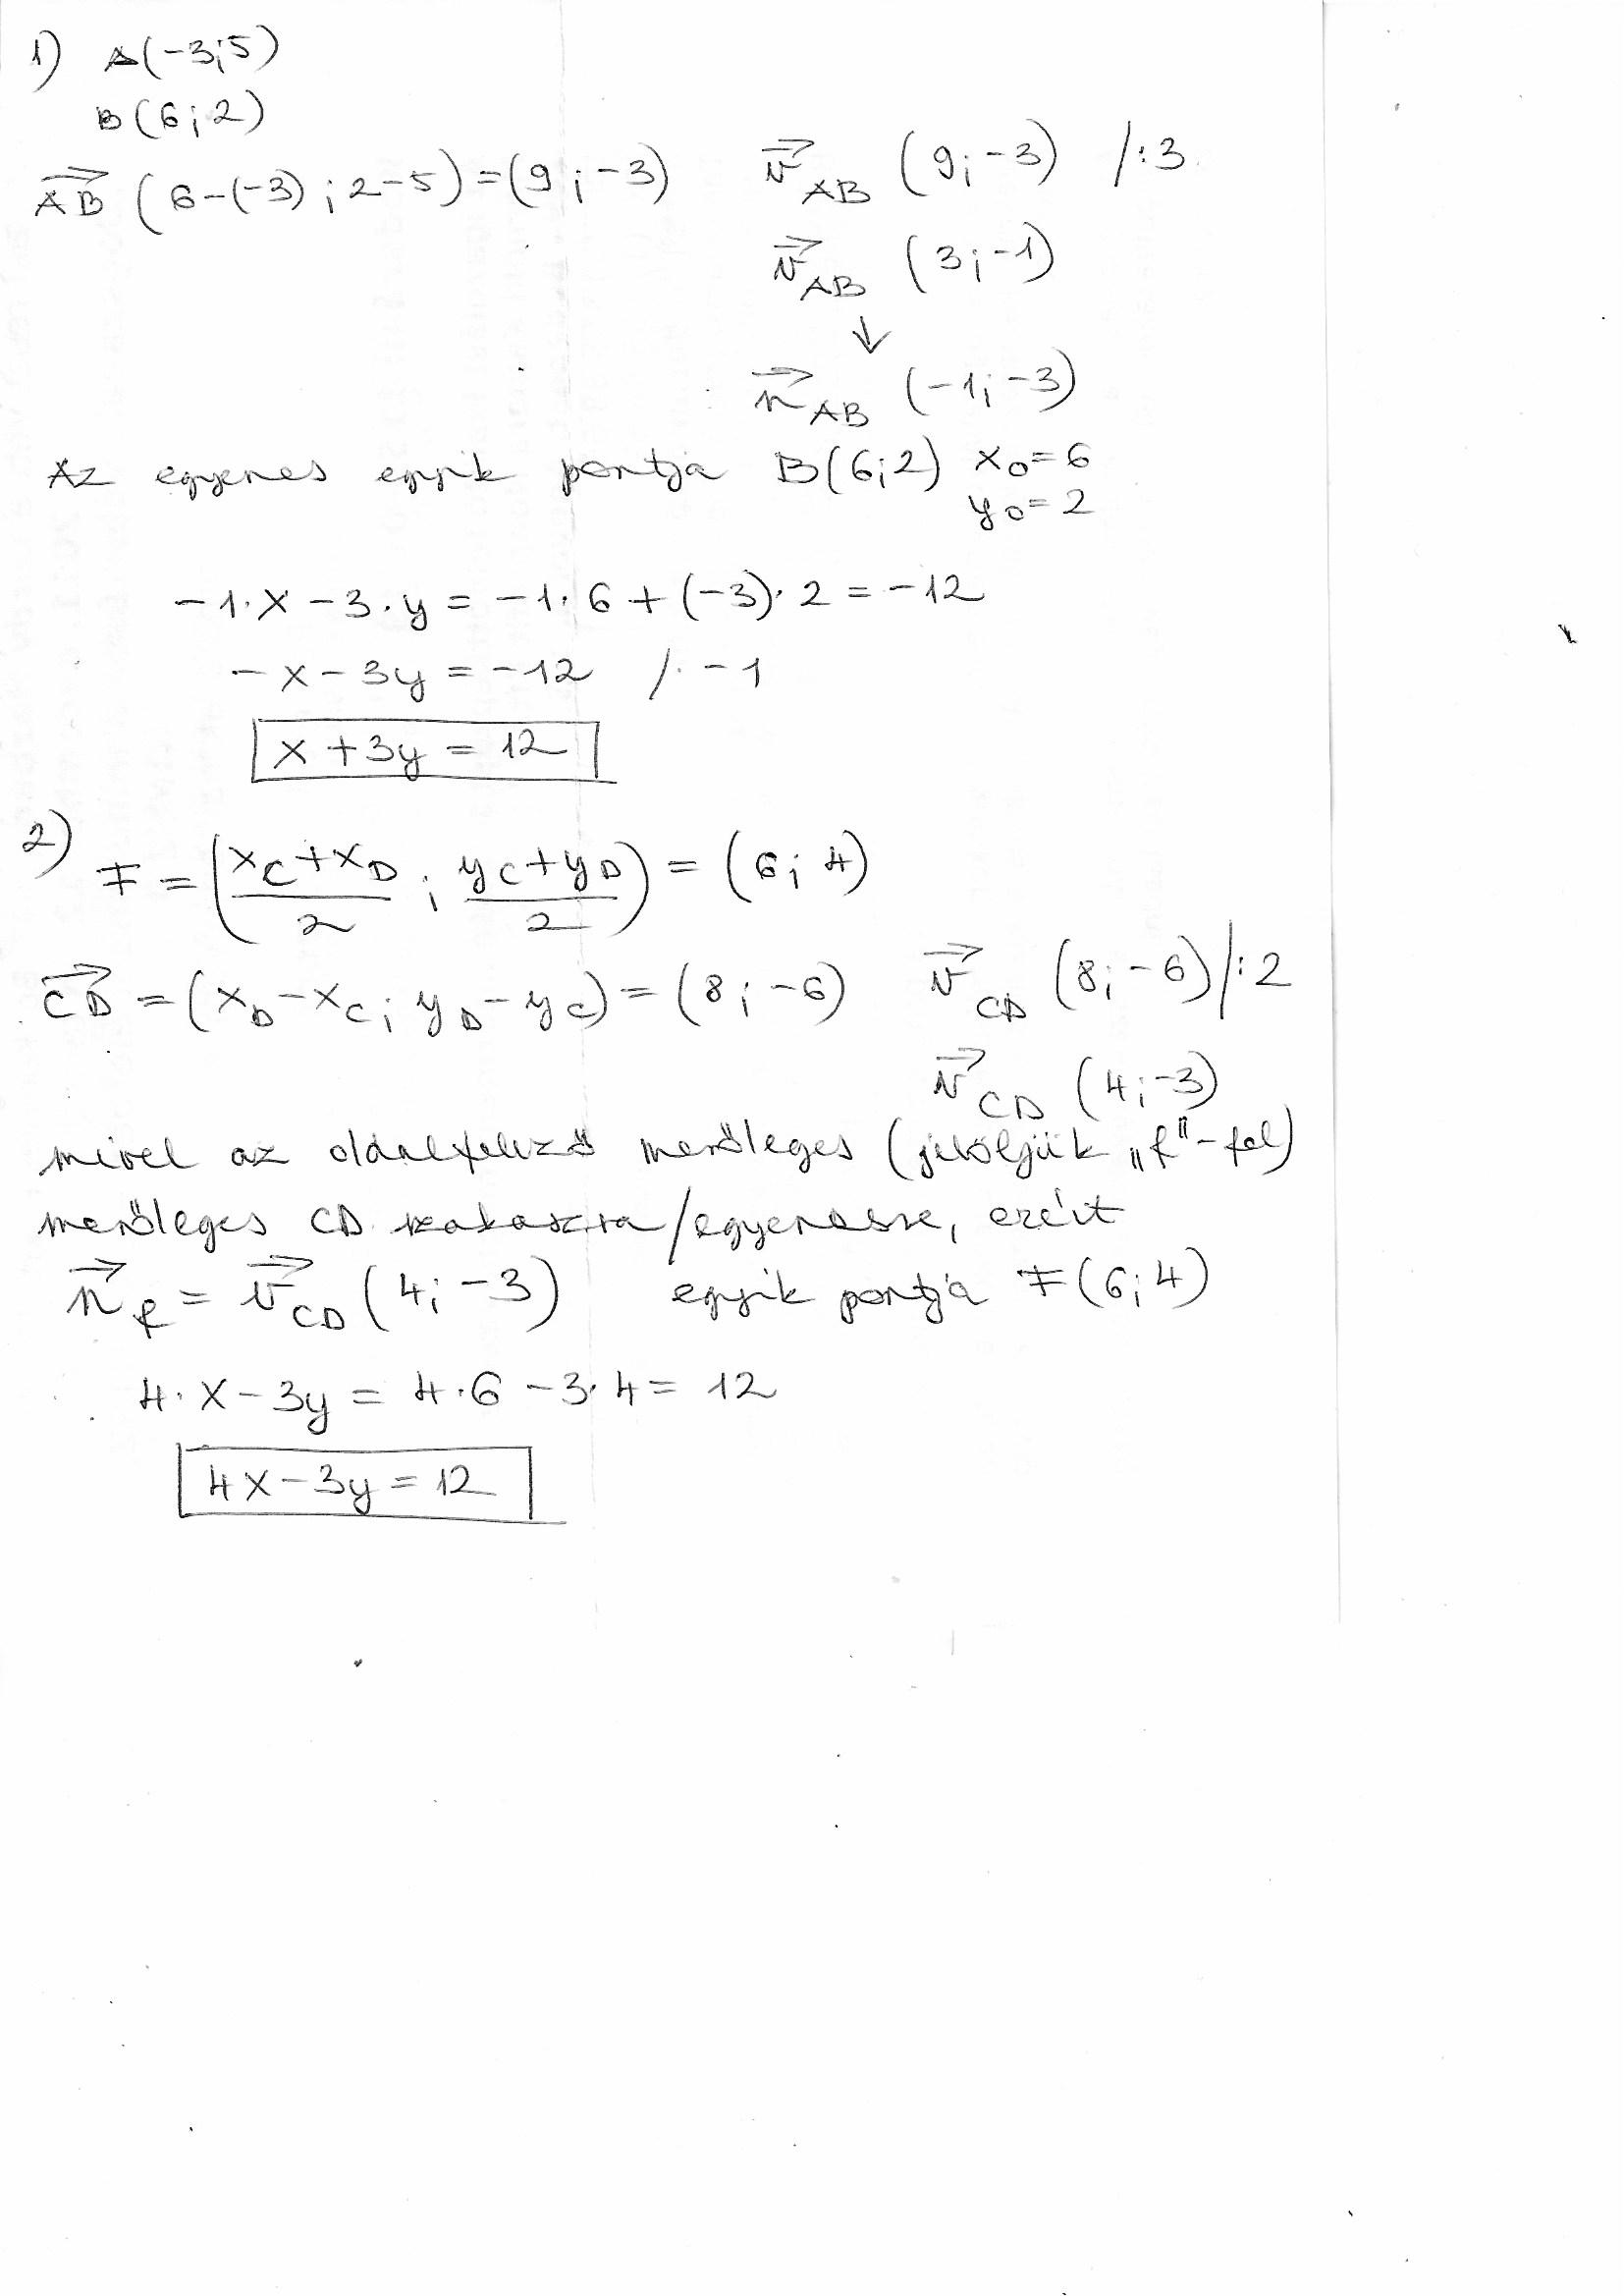 1) A(-3;5)
B(6;2)
AB→ (6-(-3);2-5)=(9;-3) v→AB (9;-3) /:3
v→AB (3;-1)
↓
n→AB (-1;-3)
Az egyenes egyik pontja B(6;2) x₀=6
y₀=2
-1·x-3·y=-1·6+(-3)·2=-12
-x-3y=-12 /·-1
x+3y=12
2) F=((xC+xD)/2;(yC+yD)/2)=(6;4)
CD→=(xD-xC;yD-yC)=(8;-6) v→CD (8;-6)/:2
v→CD (4;-3)
mivel az oldalfelező merőleges (jelöljük „f"-fel)
merőleges CD szakaszra/egyenesre, ezért
n→f=v→CD(4;-3) egyik pontja F(6;4)
4·x-3y=4·6-3·4=12
4x-3y=12